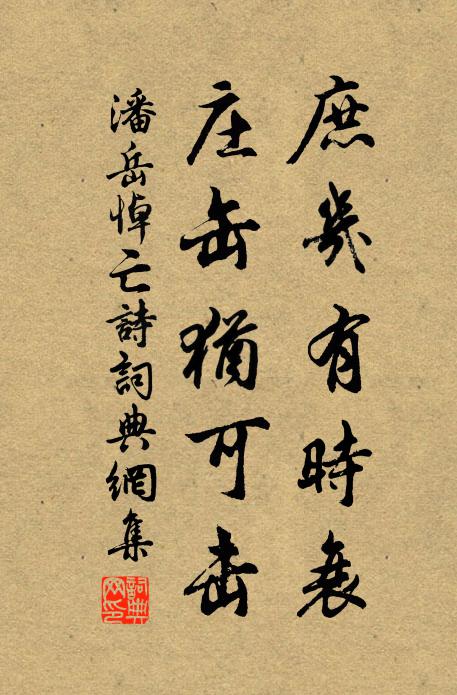 庶幾有時衰
庄缶猶可击
潘岳悼亡詩詞典網集
詞典網印